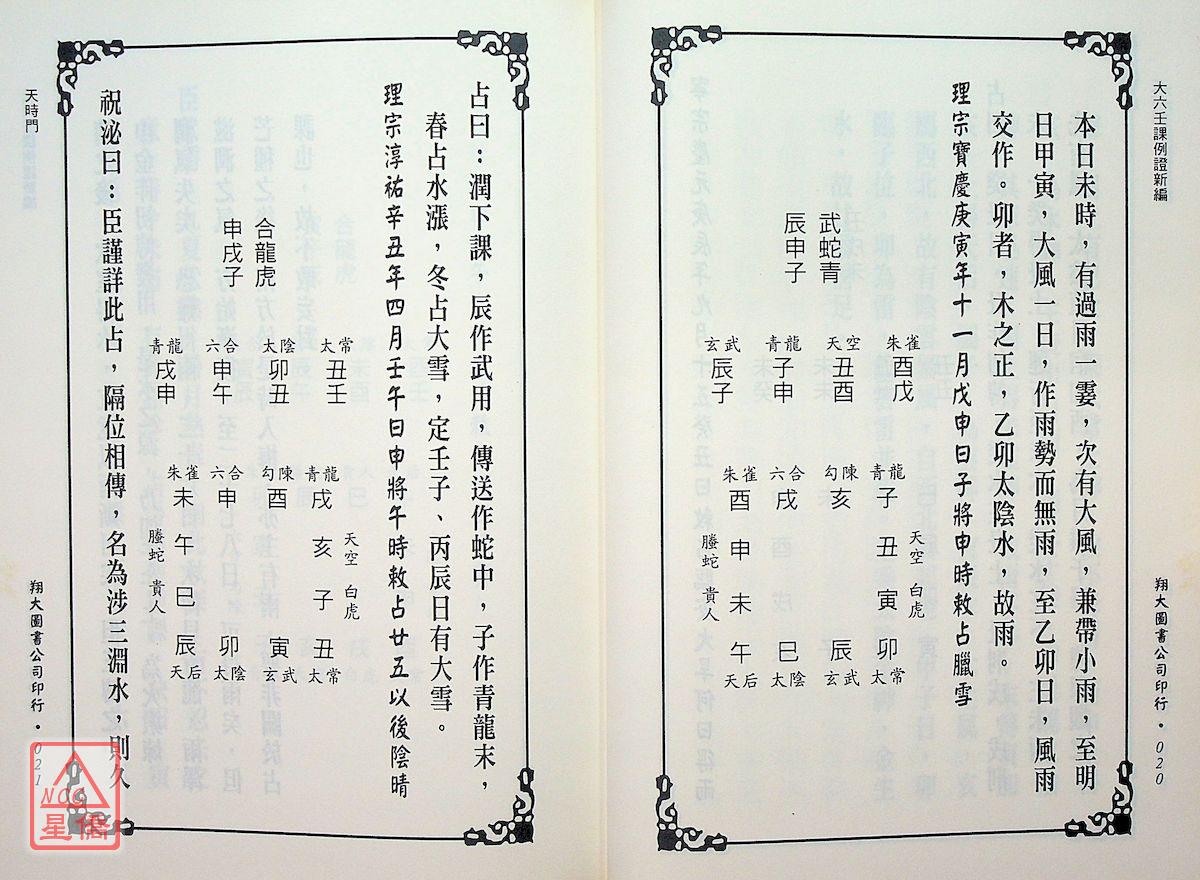 大六壬課例證新編
本日未時，有過雨一霎，次有大風，兼帶小雨，至明
日甲寅，大風一日，作雨勢而無雨，至乙卯日，風雨
交作。卯者，木之正，乙卯太陰水，故雨。
理宗寶慶庚寅年十一月戊申日子將申時敕占臘雪
武蛇青
辰申子
朱雀 酉戊
天空 丑酉
青龍 子申
玄武 辰子
朱雀 六合 勾陳 青龍
酉 戌 亥 子
申 丑 天空
螣蛇
未 寅 白虎
貴人
午 巳 辰 卯
天后 太陰 玄武 太常
翔大圖書公司印行・020
占曰：潤下課，辰作武用，傳送作蛇中，子作青龍末，
春占水漲，冬占大雪，定壬子、丙辰日有大雪。
理宗淳祐辛丑年四月壬午日申將午時敕占廿五以後陰晴
合龍虎
申戌子
太常 丑壬
太陰 卯丑
六合 申午
青龍 戌申
朱雀 六合 勾陳 青龍
未 申 酉 戌
午 亥 天空
螣蛇
巳 子 白虎
貴人
辰 卯 寅 丑
天后 太陰 玄武 太常
祝泌曰：臣謹詳此占，隔位相傳，名為涉三淵水，則久
天時門
翔大圖書公司印行・021
NCC
星僑